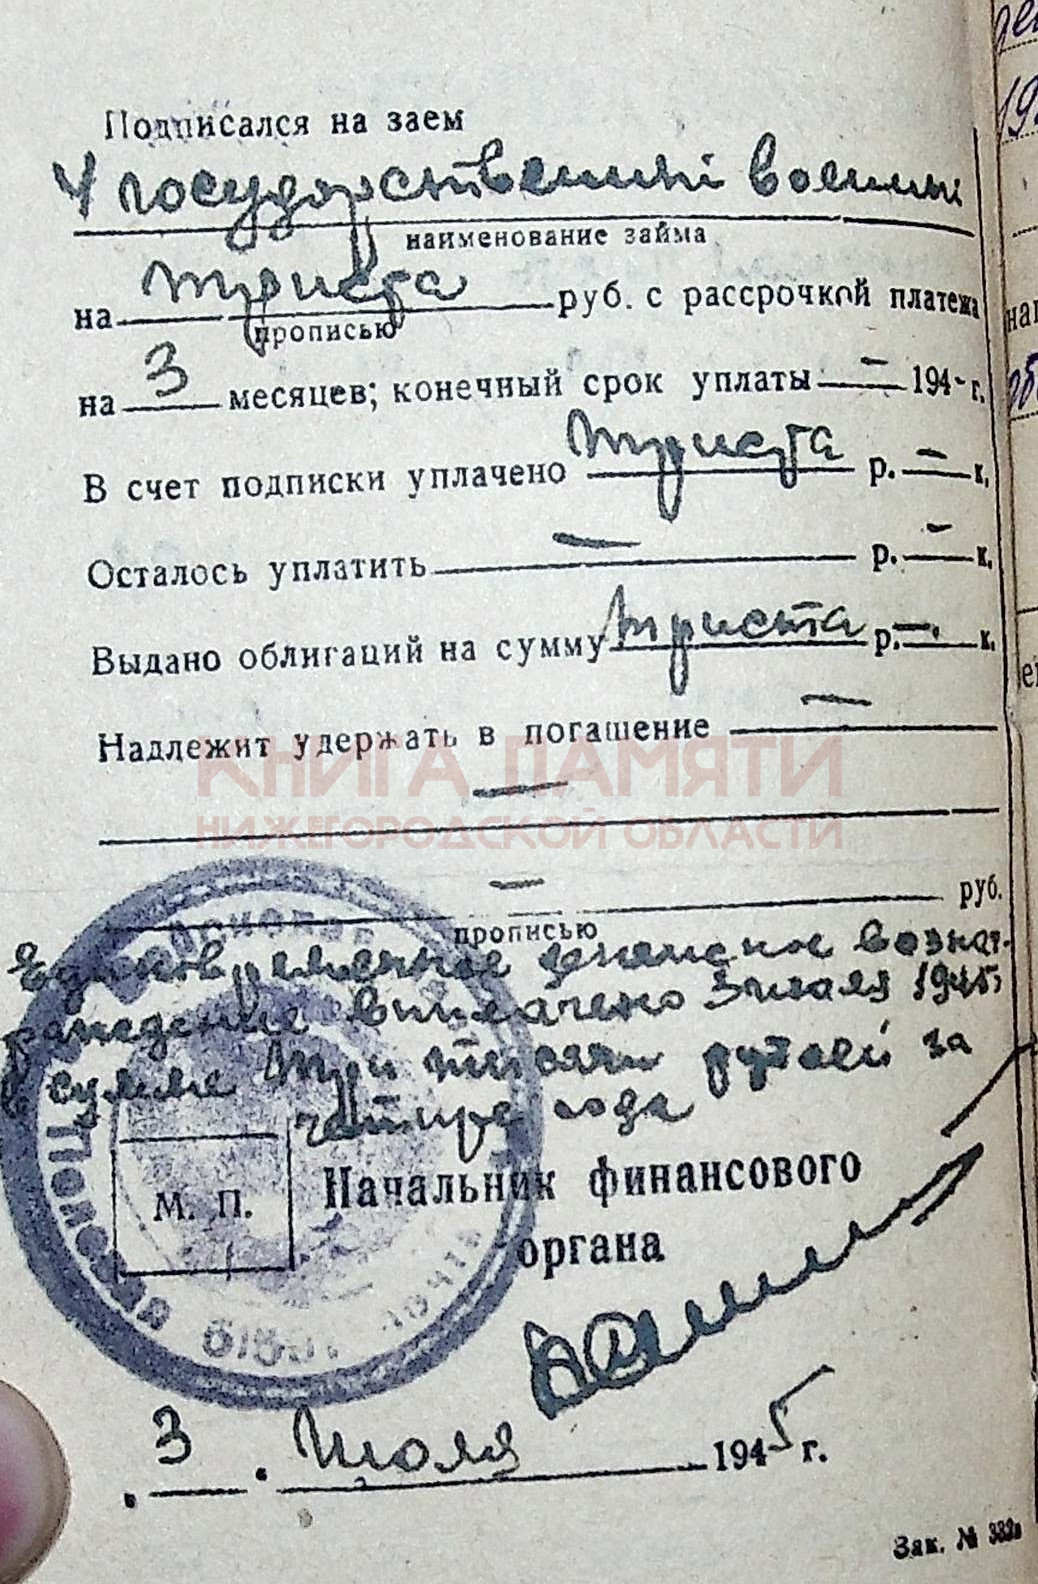 Подписался на заем
4 государственный военный
наименование займа
на триста руб. с рассрочкой платежа
прописью
на 3 месяцев; конечный срок уплаты — 194- г.
В счет подписки уплачено триста р. — к.
Осталось уплатить — р. — к.
Выдано облигаций на сумму триста р. — к.
Надлежит удержать в погашение —
—
КНИГА ПАМЯТИ
НИЖЕГОРОДСКОЙ ОБЛАСТИ
— руб.
прописью
Единовременное денежное вознаг-
раждение выплачено 3 июля 1945
в сумме три тысячи рублей за
четыре года
М. П.
Начальник финансового
органа
Полевая
почта
3. июля 1945 г.
Зак. №